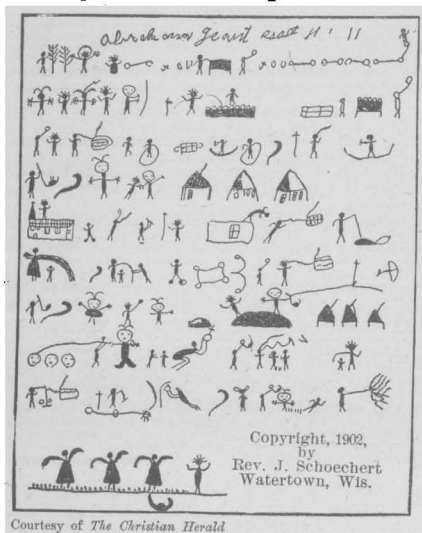 Copyright, 1902,
by
Rev. J. Schoechert
Watertown, Wis.
Courtesy of The Christian Herald